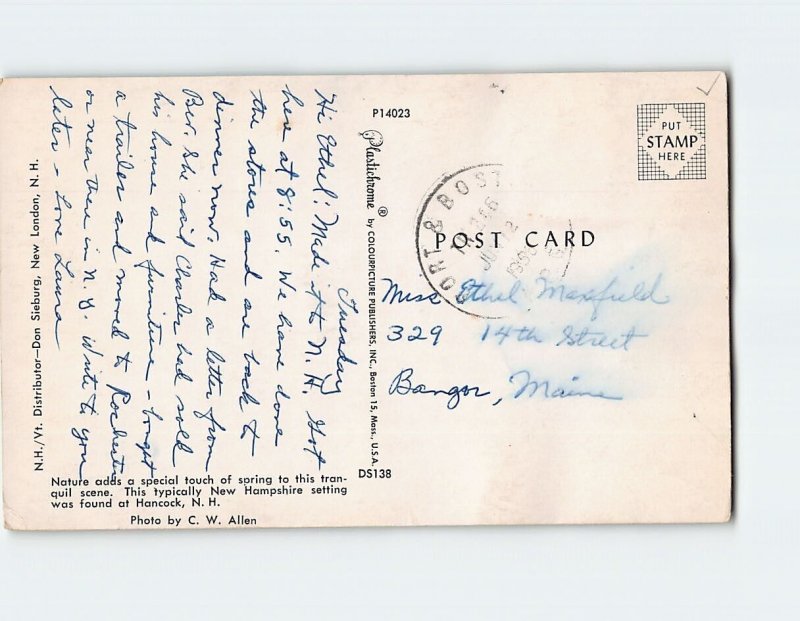 Tuesday
Hi Ethel: Made it to N. H. Got
here at 8:55. We have done
the stores and are back to
dinner now. Had a letter from
Bev. She said Charles had sold
his home and furniture - bought
a trailer and moved to Rochester
or near there in N. Y. Write to you
later - Love Laura
N.H./Vt. Distributor—Don Sieburg, New London, N. H.
Nature adds a special touch of spring to this tran-
quil scene. This typically New Hampshire setting
was found at Hancock, N. H.
Photo by C. W. Allen
DS138
P14023
Plastichrome ® by COLOURPICTURE PUBLISHERS, INC., Boston 15, Mass., U.S.A.
PUT
STAMP
HERE
PORT & BOST
POST CARD
Miss Ethel Maxfield
329 14th Street
Bangor, Maine